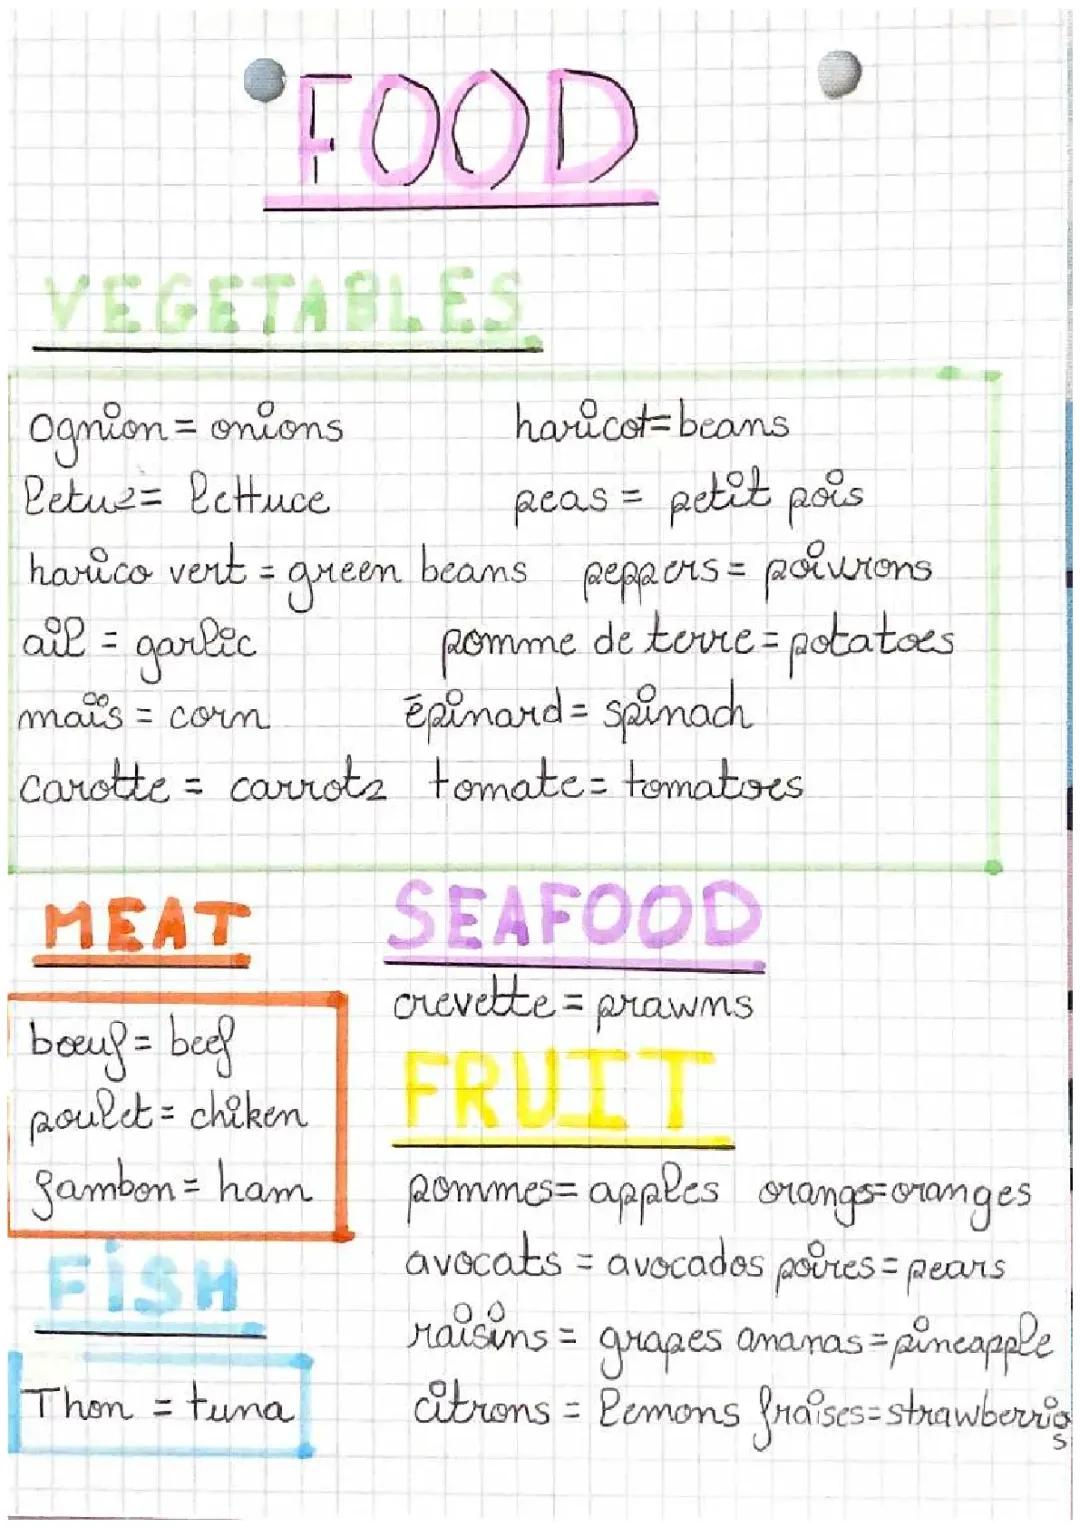 FOOD
VEGETABLES
Ognion = onions haricot = beans
letuz = lettuce peas = petit pois
harico vert = green beans peppers = poivrons
ail = garlic pomme de terre = potatoes
maïs = corn épinard = spinach
carotte = carrots tomate = tomatoes
MEAT
bœuf = beef
poulet = chiken
jambon = ham
FISH
Thon = tuna
SEAFOOD
crevette = prawns
FRUIT
pommes = apples orangs = oranges
avocats = avocados poires = pears
raisins = grapes ananas = pineapple
citrons = lemons fraises = strawberries